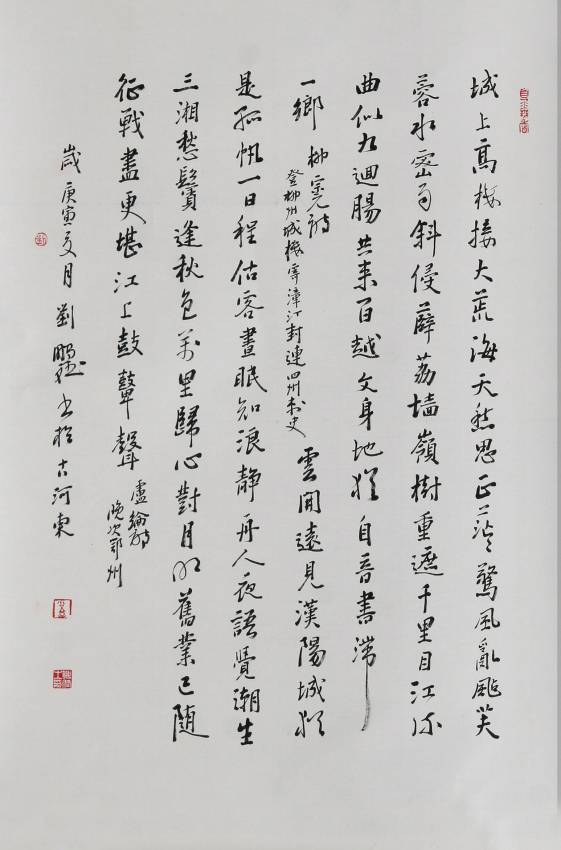 城上高楼接大荒海天愁思正茫〻驚風亂颭芙
蓉水密雨斜侵薜荔墙嶺樹重遮千里目江流
曲似九迴腸共来百越文身地猶自音書滞
一鄉
柳宗元詩
登柳州城樓寄漳汀封連四州刺史
雲開遠見漢陽城猶
是孤帆一日程估客晝眠知浪静舟人夜語覺潮生
三湘愁鬢逢秋色萬里歸心對月明舊業已随
征戰盡更堪江上鼓鼙聲
盧綸詩
晚次鄂州
歲庚寅夏月劉书於古河東